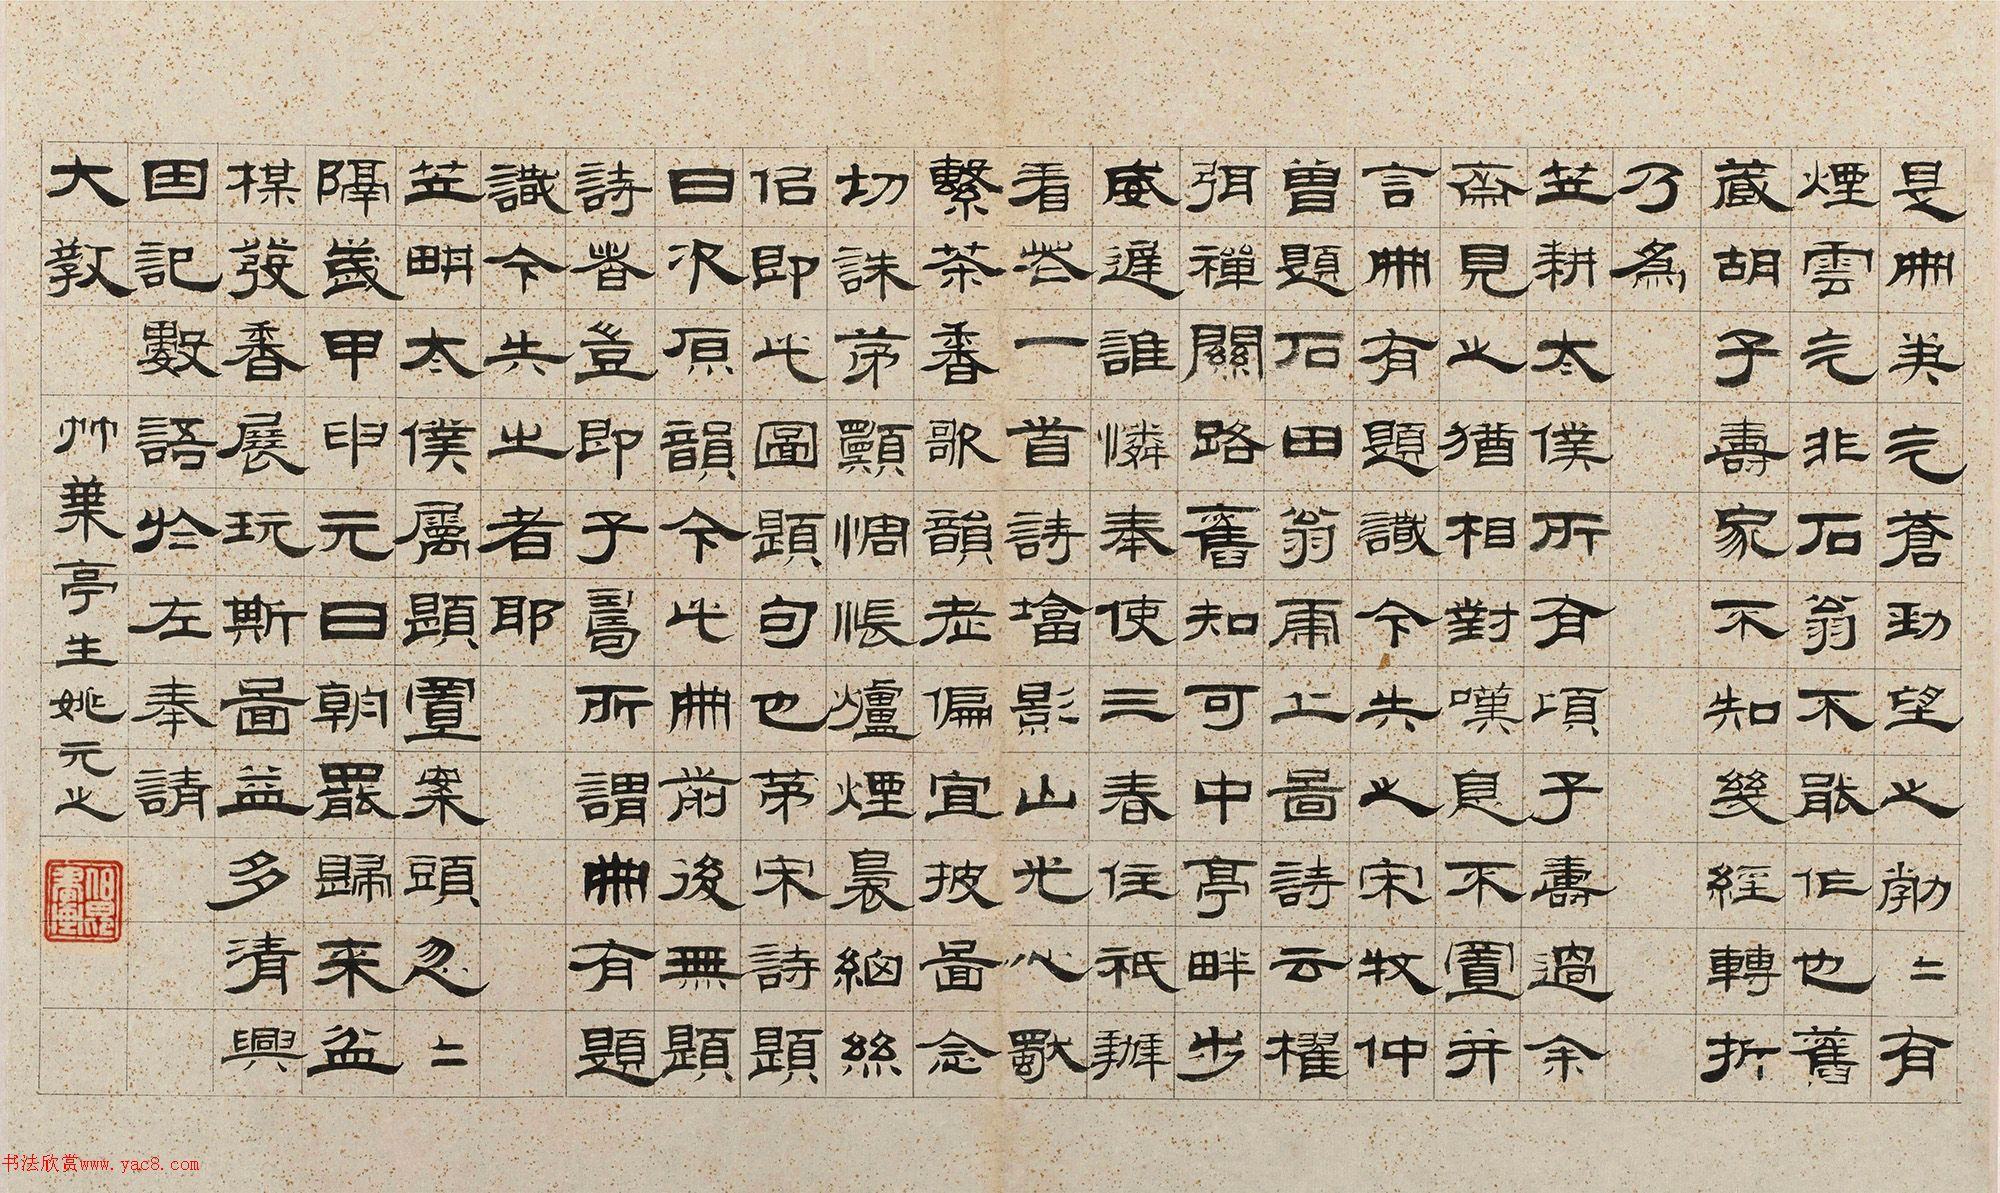 是冊气蒼勁望之勃二有
煙雲气非石翁不能作也舊
藏胡子壽家不知幾經轉折
乃為
笠耕太僕所有項子壽過余
齋見之猶相對嘆息不置并
言冊有題識今失之宋牧仲
曾題石田翁虎丘啚詩云櫂
弭禪關路舊知可中亭畔步
威遲誰憐奉使三春住祇辦
看花一首詩塔影山光心獨
繫茶香歌韻老偏宜披啚念
切誅茅願惆悵爐煙裊細絲
侶即此圖題句也第宋詩題
曰次原韻今此冊前後無題
詩者豈即子壽所謂冊有題
識今失之者耶
笠畊太僕屬題置案頭忽二
隔歲甲申元日朝罷歸來盆
楳發香展玩斯啚益多清興
因記數語於左奉請
大教 竹葉亭生姚元之
书法欣赏www.yac8.com